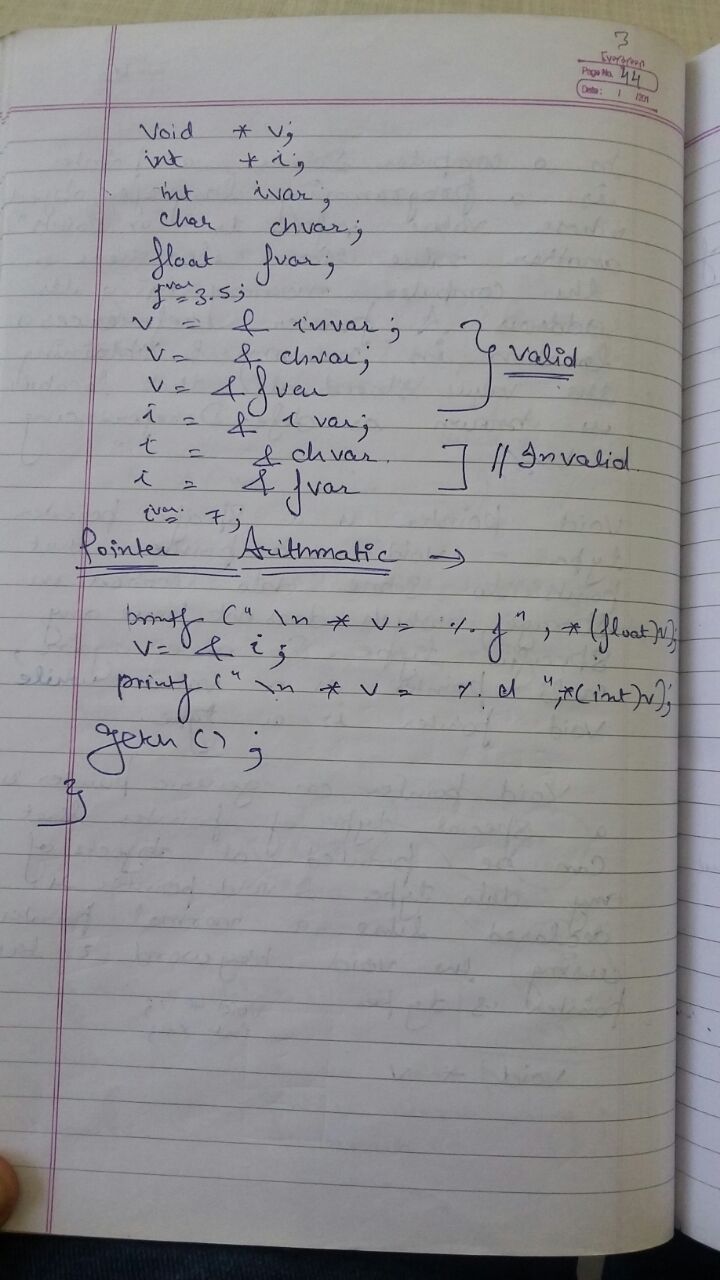 3
Evergreen
Page No. 44
Date: / /201
void * v;
int * i;
int ivar;
char chvar;
float fvar;
fvar = 3.5;
v = & invar;
v = & chvar; } Valid
v = & fvar
i = & ivar;
i = & chvar. ] // Invalid.
i = & fvar
ivar = 7;
Pointer Arithmatic →
printf (" \n * v = %. f", *(float)v);
v = & i;
printf (" \n * v = %. d ", *(int)v);
}